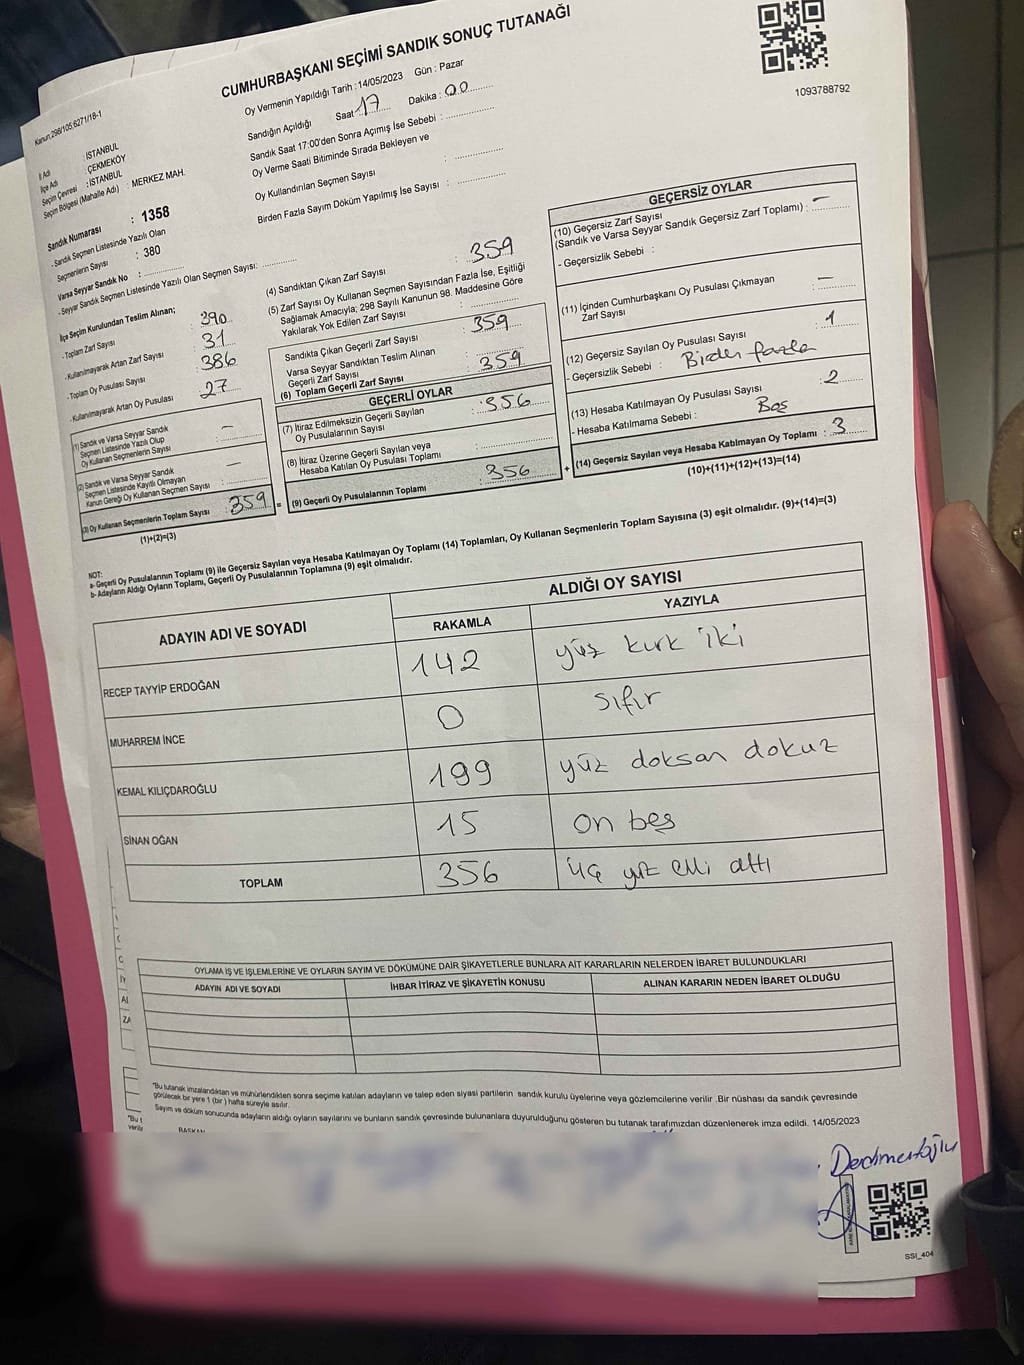 CUMHURBAŞKANI SEÇİMİ SANDIK SONUÇ TUTANAĞI
Oy Vermenin Yapıldığı Tarih : 14/05/2023 Gün : Pazar
1093788792
Kanun:298/105;6271/18-1
Sandığın Açıldığı Saat 17 Dakika : 00
Sandık Saat 17:00'den Sonra Açımış İse Sebebi :
Oy Verme Saati Bitiminde Sırada Bekleyen ve
Oy Kullandırılan Seçmen Sayısı :
Birden Fazla Sayım Döküm Yapılmış İse Sayısı :
İl Adı : İSTANBUL
İlçe Adı : ÇEKMEKÖY
Seçim Çevresi : İSTANBUL
Seçim Bölgesi (Mahalle Adı) : MERKEZ MAH.
Sandık Numarası : 1358
-Sandık Seçmen Listesinde Yazılı Olan
Seçmenlerin Sayısı : 380
Varsa Seyyar Sandık No :
-Seyyar Sandık Seçmen Listesinde Yazılı Olan Seçmen Sayısı:
İlçe Seçim Kurulundan Teslim Alınan;
-Toplam Zarf Sayısı : 390
-Kullanılmayarak Artan Zarf Sayısı : 31
-Toplam Oy Pusulası Sayısı : 386
-Kullanılmayarak Artan Oy Pusulası : 27
(1) Sandık ve Varsa Seyyar Sandık
Seçmen Listesinde Yazılı Olup
Oy Kullanan Seçmenlerin Sayısı : -
(2) Sandık ve Varsa Seyyar Sandık
Seçmen Listesinde Kayıtlı Olmayan
Kanun Gereği Oy Kullanan Seçmen Sayısı : -
(3) Oy Kullanan Seçmenlerin Toplam Sayısı : 359 =
(1)+(2)=(3)
(4) Sandıktan Çıkan Zarf Sayısı : 359
(5) Zarf Sayısı Oy Kullanan Seçmen Sayısından Fazla İse, Eşitliği
Sağlamak Amacıyla; 298 Sayılı Kanunun 98. Maddesine Göre
Yakılarak Yok Edilen Zarf Sayısı :
Sandıkta Çıkan Geçerli Zarf Sayısı : 359
Varsa Seyyar Sandıktan Teslim Alınan
Geçerli Zarf Sayısı :
(6) Toplam Geçerli Zarf Sayısı : 359
GEÇERLİ OYLAR
(7) İtiraz Edilmeksizin Geçerli Sayılan
Oy Pusulalarının Sayısı : 356
(8) İtiraz Üzerine Geçerli Sayılan veya
Hesaba Katılan Oy Pusulası Toplamı :
(9) Geçerli Oy Pusulalarının Toplamı : 356 +
GEÇERSİZ OYLAR
(10) Geçersiz Zarf Sayısı
(Sandık ve Varsa Seyyar Sandık Geçersiz Zarf Toplamı) : -
- Geçersizlik Sebebi :
(11) İçinden Cumhurbaşkanı Oy Pusulası Çıkmayan
Zarf Sayısı : -
(12) Geçersiz Sayılan Oy Pusulası Sayısı : 1
- Geçersizlik Sebebi : Birden fazla
(13) Hesaba Katılmayan Oy Pusulası Sayısı : 2
- Hesaba Katılmama Sebebi : Boş
(14) Geçersiz Sayılan veya Hesaba Katılmayan Oy Toplamı : 3
(10)+(11)+(12)+(13)=(14)
NOT:
a- Geçerli Oy Pusulalarının Toplamı (9) ile Geçersiz Sayılan veya Hesaba Katılmayan Oy Toplamı (14) Toplamları, Oy Kullanan Seçmenlerin Toplam Sayısına (3) eşit olmalıdır. (9)+(14)=(3)
b- Adayların Aldığı Oyların Toplamı, Geçerli Oy Pusulalarının Toplamına (9) eşit olmalıdır.
ADAYIN ADI VE SOYADI
ALDIĞI OY SAYISI
RAKAMLA YAZIYLA
RECEP TAYYİP ERDOĞAN 142 yüz kırk iki
MUHARREM İNCE 0 sıfır
KEMAL KILIÇDAROĞLU 199 yüz doksan dokuz
SİNAN OĞAN 15 on beş
TOPLAM 356 üç yüz elli altı
OYLAMA İŞ VE İŞLEMLERİNE VE OYLARIN SAYIM VE DÖKÜMÜNE DAİR ŞİKAYETLERLE BUNLARA AİT KARARLARIN NELERDEN İBARET BULUNDUKLARI
ADAYIN ADI VE SOYADI İHBAR İTİRAZ VE ŞİKAYETİN KONUSU ALINAN KARARIN NEDEN İBARET OLDUĞU
*Bu tutanak imzalandıktan ve mühürlendikten sonra seçime katılan adayların ve talep eden siyasi partilerin sandık kurulu üyelerine veya gözlemcilerine verilir .Bir nüshası da sandık çevresinde
görülecek bir yere 1 (bir ) hafta süreyle asılır.
Sayım ve döküm sonucunda adayların aldığı oyların sayılarını ve bunların sandık çevresinde bulunanlara duyurulduğunu gösteren bu tutanak tarafımızdan düzenlenerek imza edildi. 14/05/2023
*Bu t
veril
BAŞKAN
SSİ_404